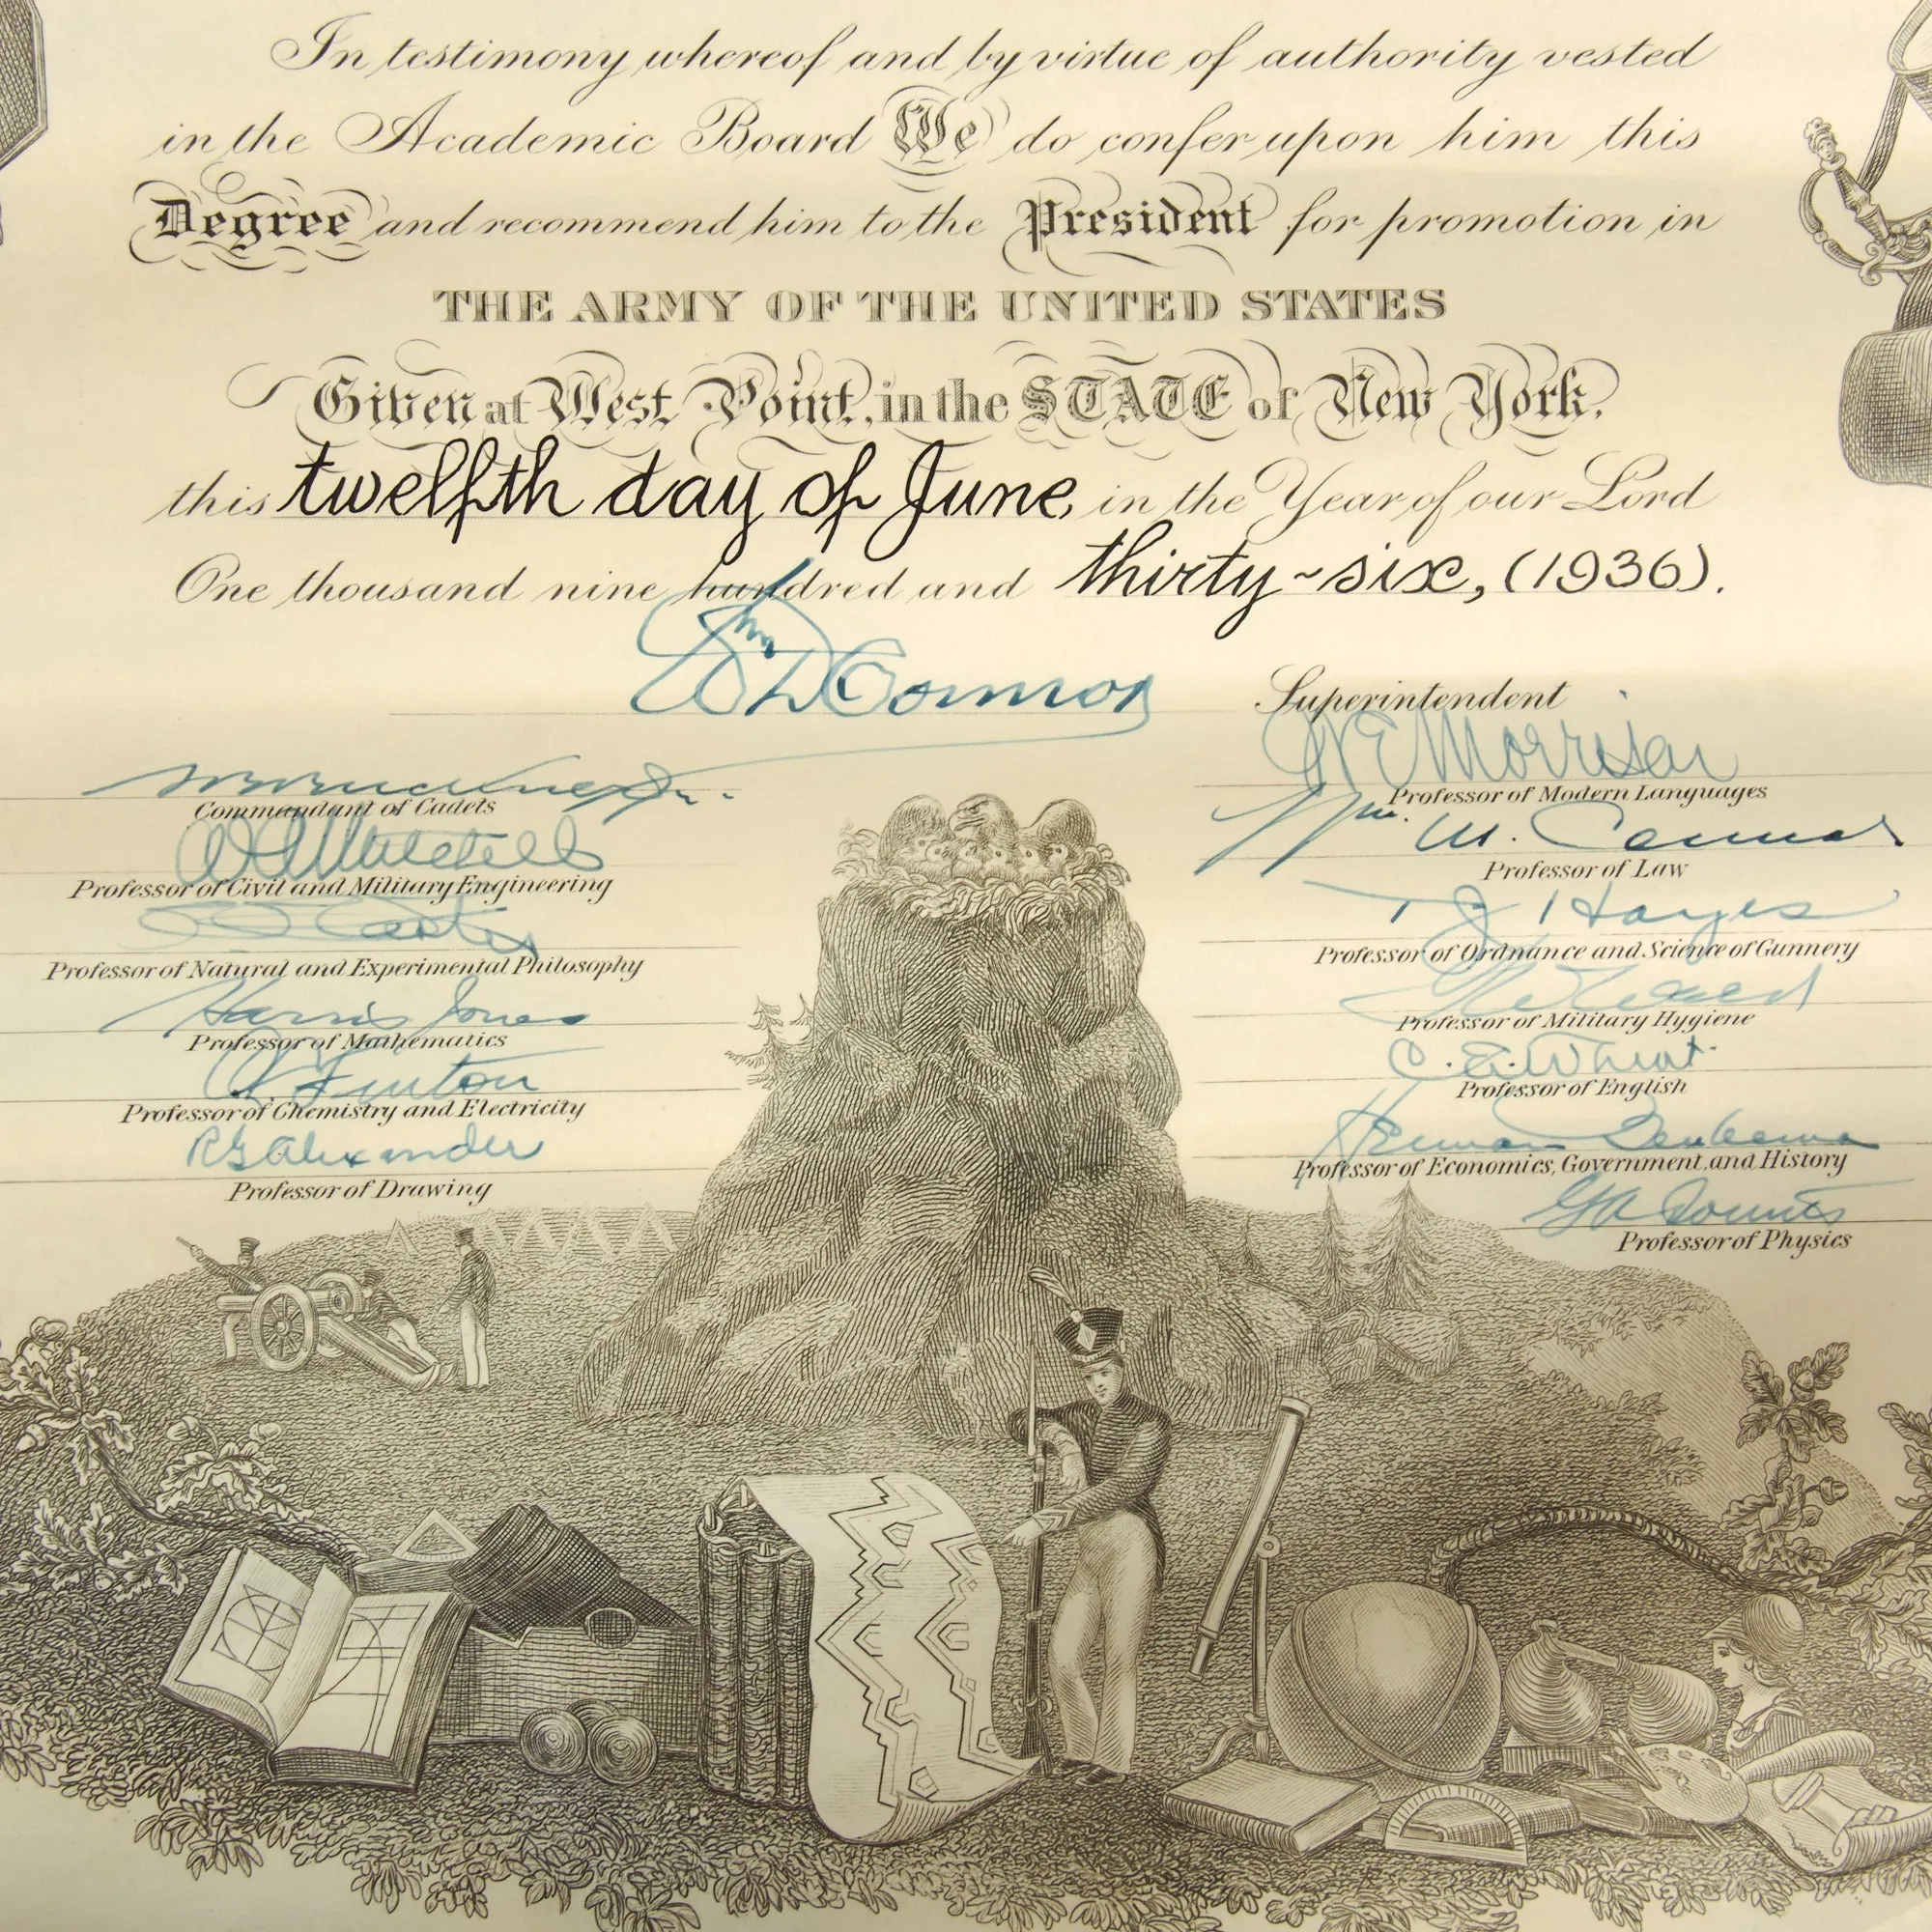 In testimony whereof and by virtue of authority vested
in the Academic Board We do confer upon him this
Degree and recommend him to the President for promotion in
THE ARMY OF THE UNITED STATES
Given at West Point, in the STATE of New York,
this twelfth day of June, in the Year of our Lord
One thousand nine hundred and thirty-six, (1936).
Wm D Connor
Superintendent
Commandant of Cadets
W E Morrison
Professor of Modern Languages
W A Mitchell
Professor of Civil and Military Engineering
Wm. M. Connor
Professor of Law
C C Carter
Professor of Natural and Experimental Philosophy
T J Hayes
Professor of Ordnance and Science of Gunnery
Harris Jones
Professor of Mathematics
Professor of Military Hygiene
C L Fenton
Professor of Chemistry and Electricity
C. E. Wheat
Professor of English
R G Alexander
Professor of Drawing
Herman Beukema
Professor of Economics, Government, and History
G A Counts
Professor of Physics